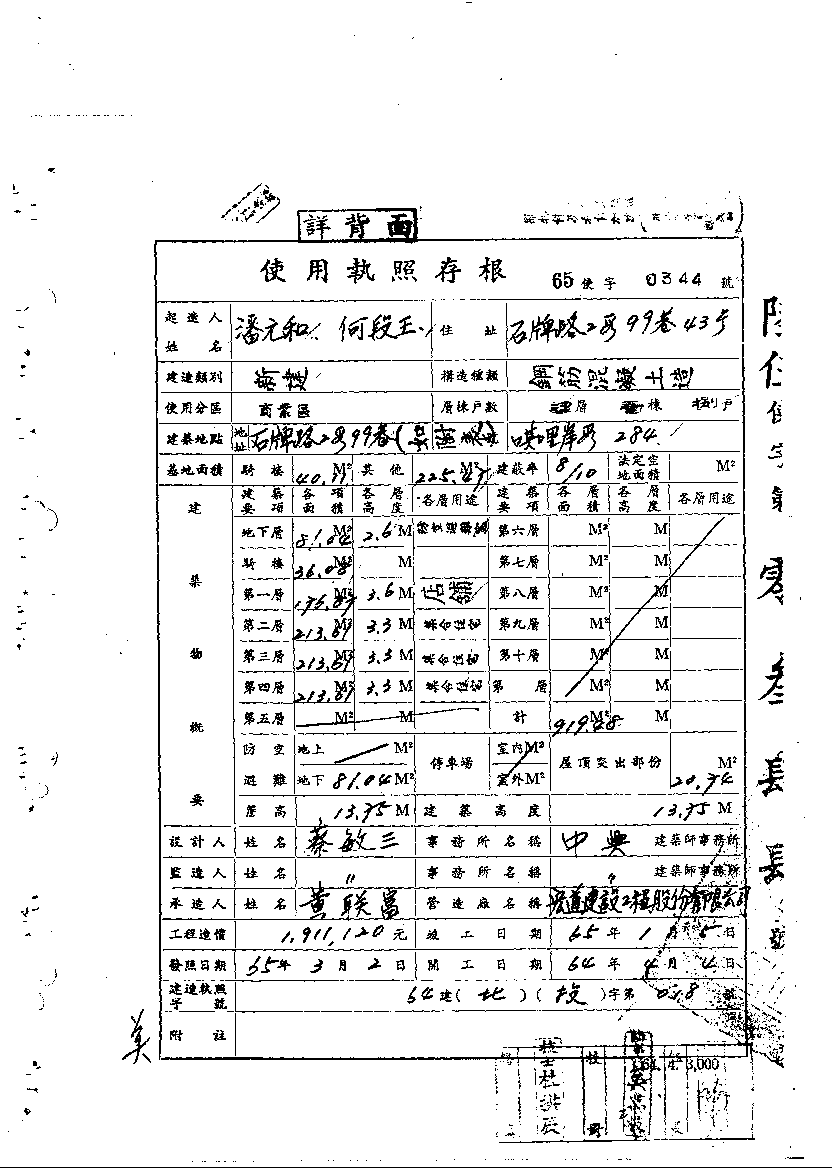 詳背面
使用執照存根 65使字 0344 號
起造人姓名 潘元和、何段王 住址 石牌路2段99巷43号
建造類別 新建 構造種類 鋼筋混凝土造
使用分區 商業區 層棟戶數 層 棟 戶
建築地點 地址 石牌路2段99巷( 唭哩岸段 284
基地面積 騎樓 40.11 M² 其他 225.47 M² 建蔽率 8/10 法定空地面積 M²
建築物概要
建築要項 各項面積 各層高度 各層用途 建築要項 各層面積 各層高度 各層用途
地下層 81.04 M² 2.6 M 第六層 M² M
騎樓 36.08 M² M 第七層 M² M
第一層 M² 3.6 M 店舖 第八層 M² M
第二層 213.69 M² 3.3 M 集合住宅 第九層 M² M
第三層 213.69 M² 3.3 M 集合住宅 第十層 M² M
第四層 213.69 M² 3.3 M 集合住宅 第 層 M² M
第五層 M² M 計 919.48 M² M
防空避難 地上 M² 停車場 室內M² 屋頂突出部份 M²
地下 81.04 M² 室外M² 20.74
簷高 13.75 M 建築高度 13.75 M
設計人 姓名 蔡敏三 事務所名稱 中興 建築師事務所
監造人 姓名 〃 事務所名稱 〃 建築師事務所
承造人 姓名 黃联富 營造廠名稱 宏道建設工程股份有限公司
工程造價 1,911,120 元 竣工日期 65 年 1 月 5 日
發照日期 65 年 3 月 2 日 開工日期 64 年 4 月 4 日
建造執照字號 64 建(北)(投)字第 018 號
附註
64. 4. 3,000